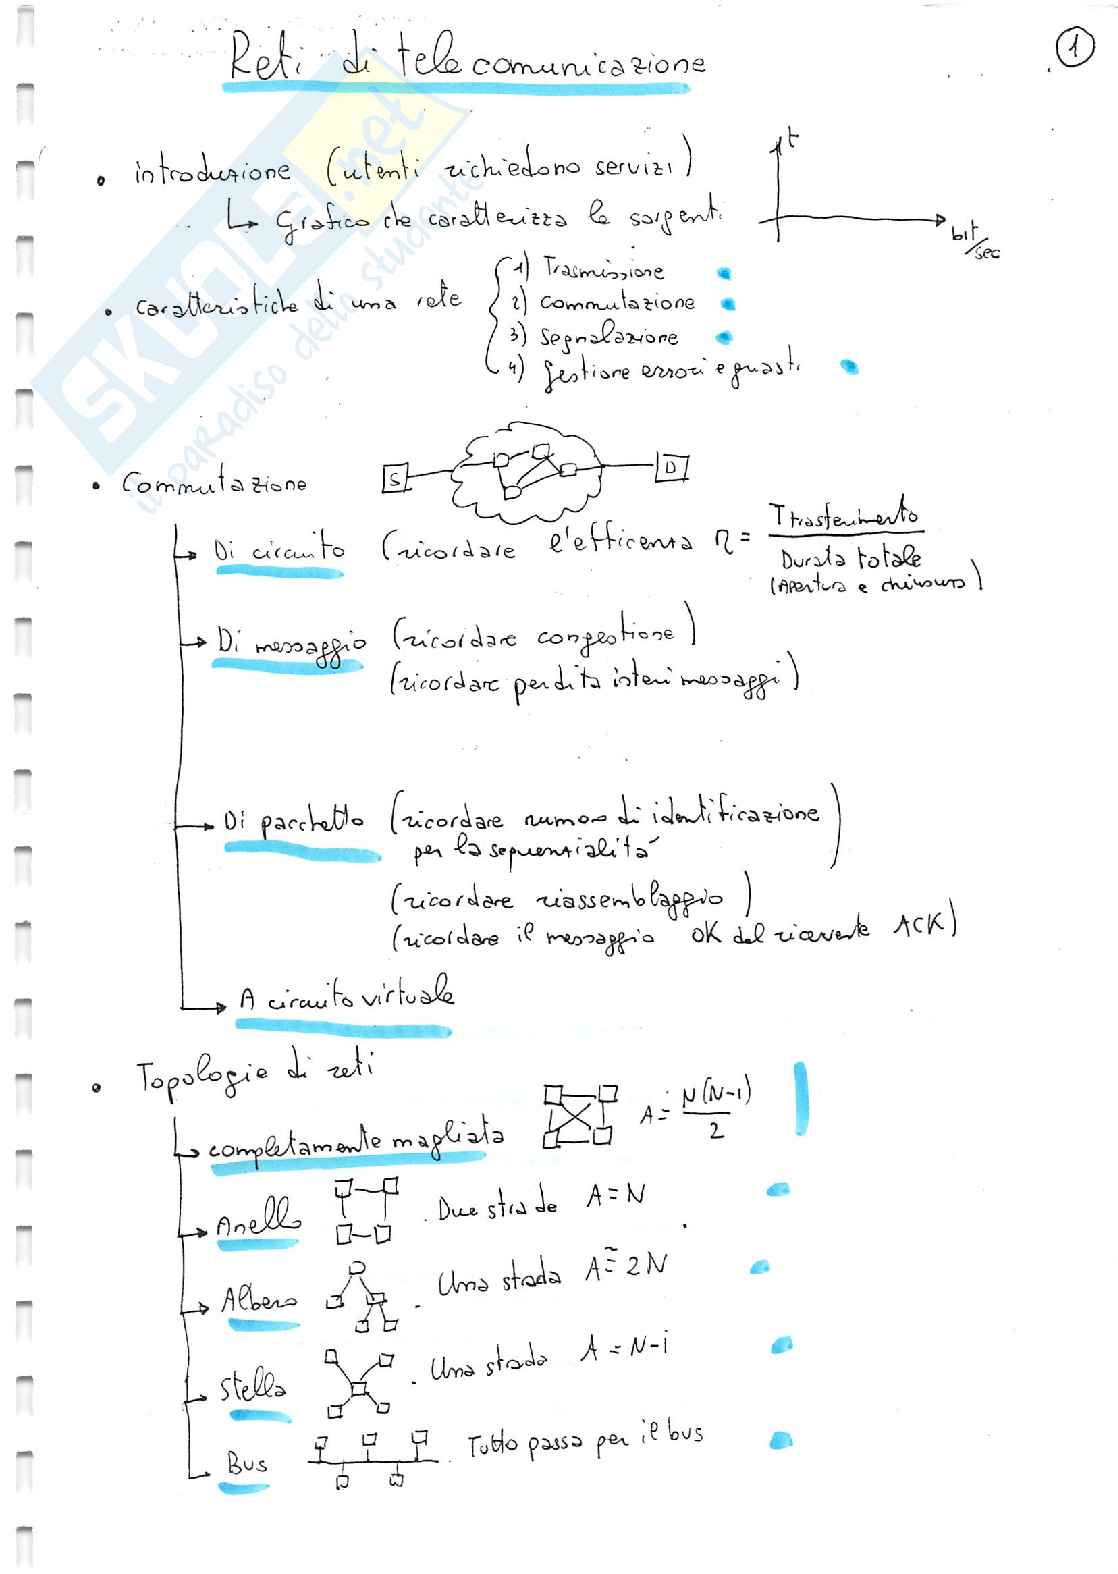 1
Reti di telecomunicazione
• introduzione (utenti richiedono servizi)
↳ Grafico che caratterizza le sorgenti
t
bit/sec
• caratteristiche di una rete
1) Trasmissione
2) commutazione
3) segnalazione
4) gestione errori e guasti
SKUOLA.net
il paradiso dello studente
• Commutazione
S
D
→ Di circuito (ricordare l'efficenza η = Ttrasferimento / Durata totale
(Apertura e chiusura)
→ Di messaggio (ricordare congestione)
(ricordare perdita interi messaggi)
→ Di pacchetto (ricordare numero di identificazione
per la sequenzialità)
(ricordare riassemblaggio)
(ricordare il messaggio OK del ricevente ACK)
→ A circuito virtuale
• Topologie di reti
→ completamente magliata A = N(N-1)/2
→ Anello . Due strade A = N
→ Albero . Una strada A ≅ 2N
→ Stella . Una strada A = N-1
→ Bus . Tutto passa per il bus